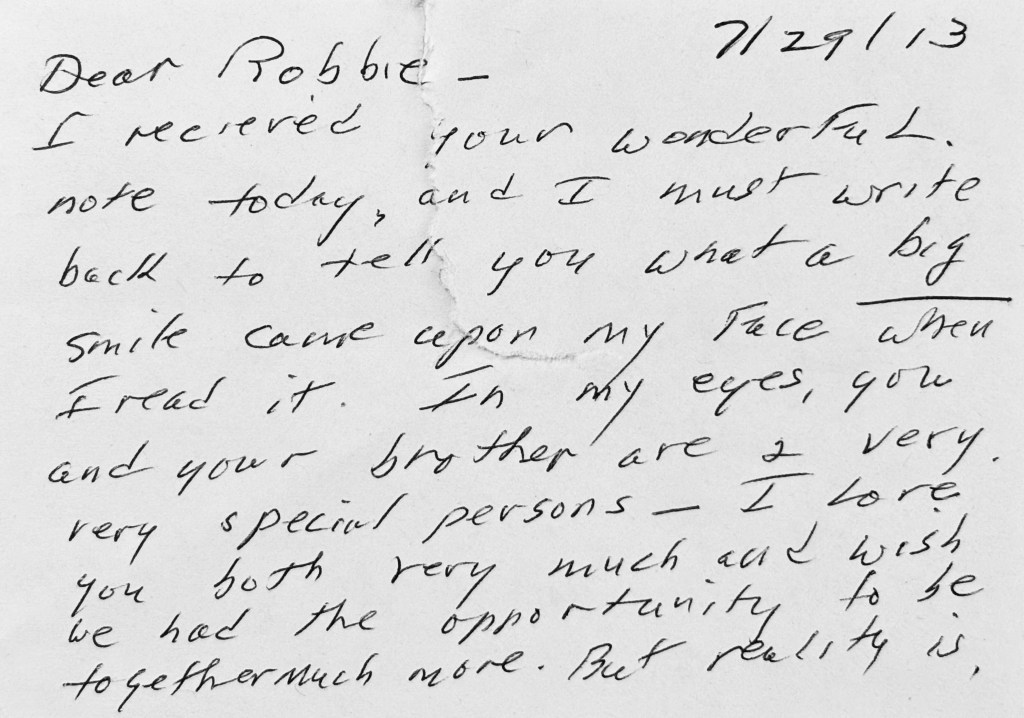 7/29/13
Dear Robbie –
I recieved your wonderful.
note today, and I must write
back to tell you what a big
smile came upon my face when
I read it. In my eyes, you
and your brother are 2 very.
very special persons – I love
you both very much and wish
we had the opportunity to be
together much more. But reality is,